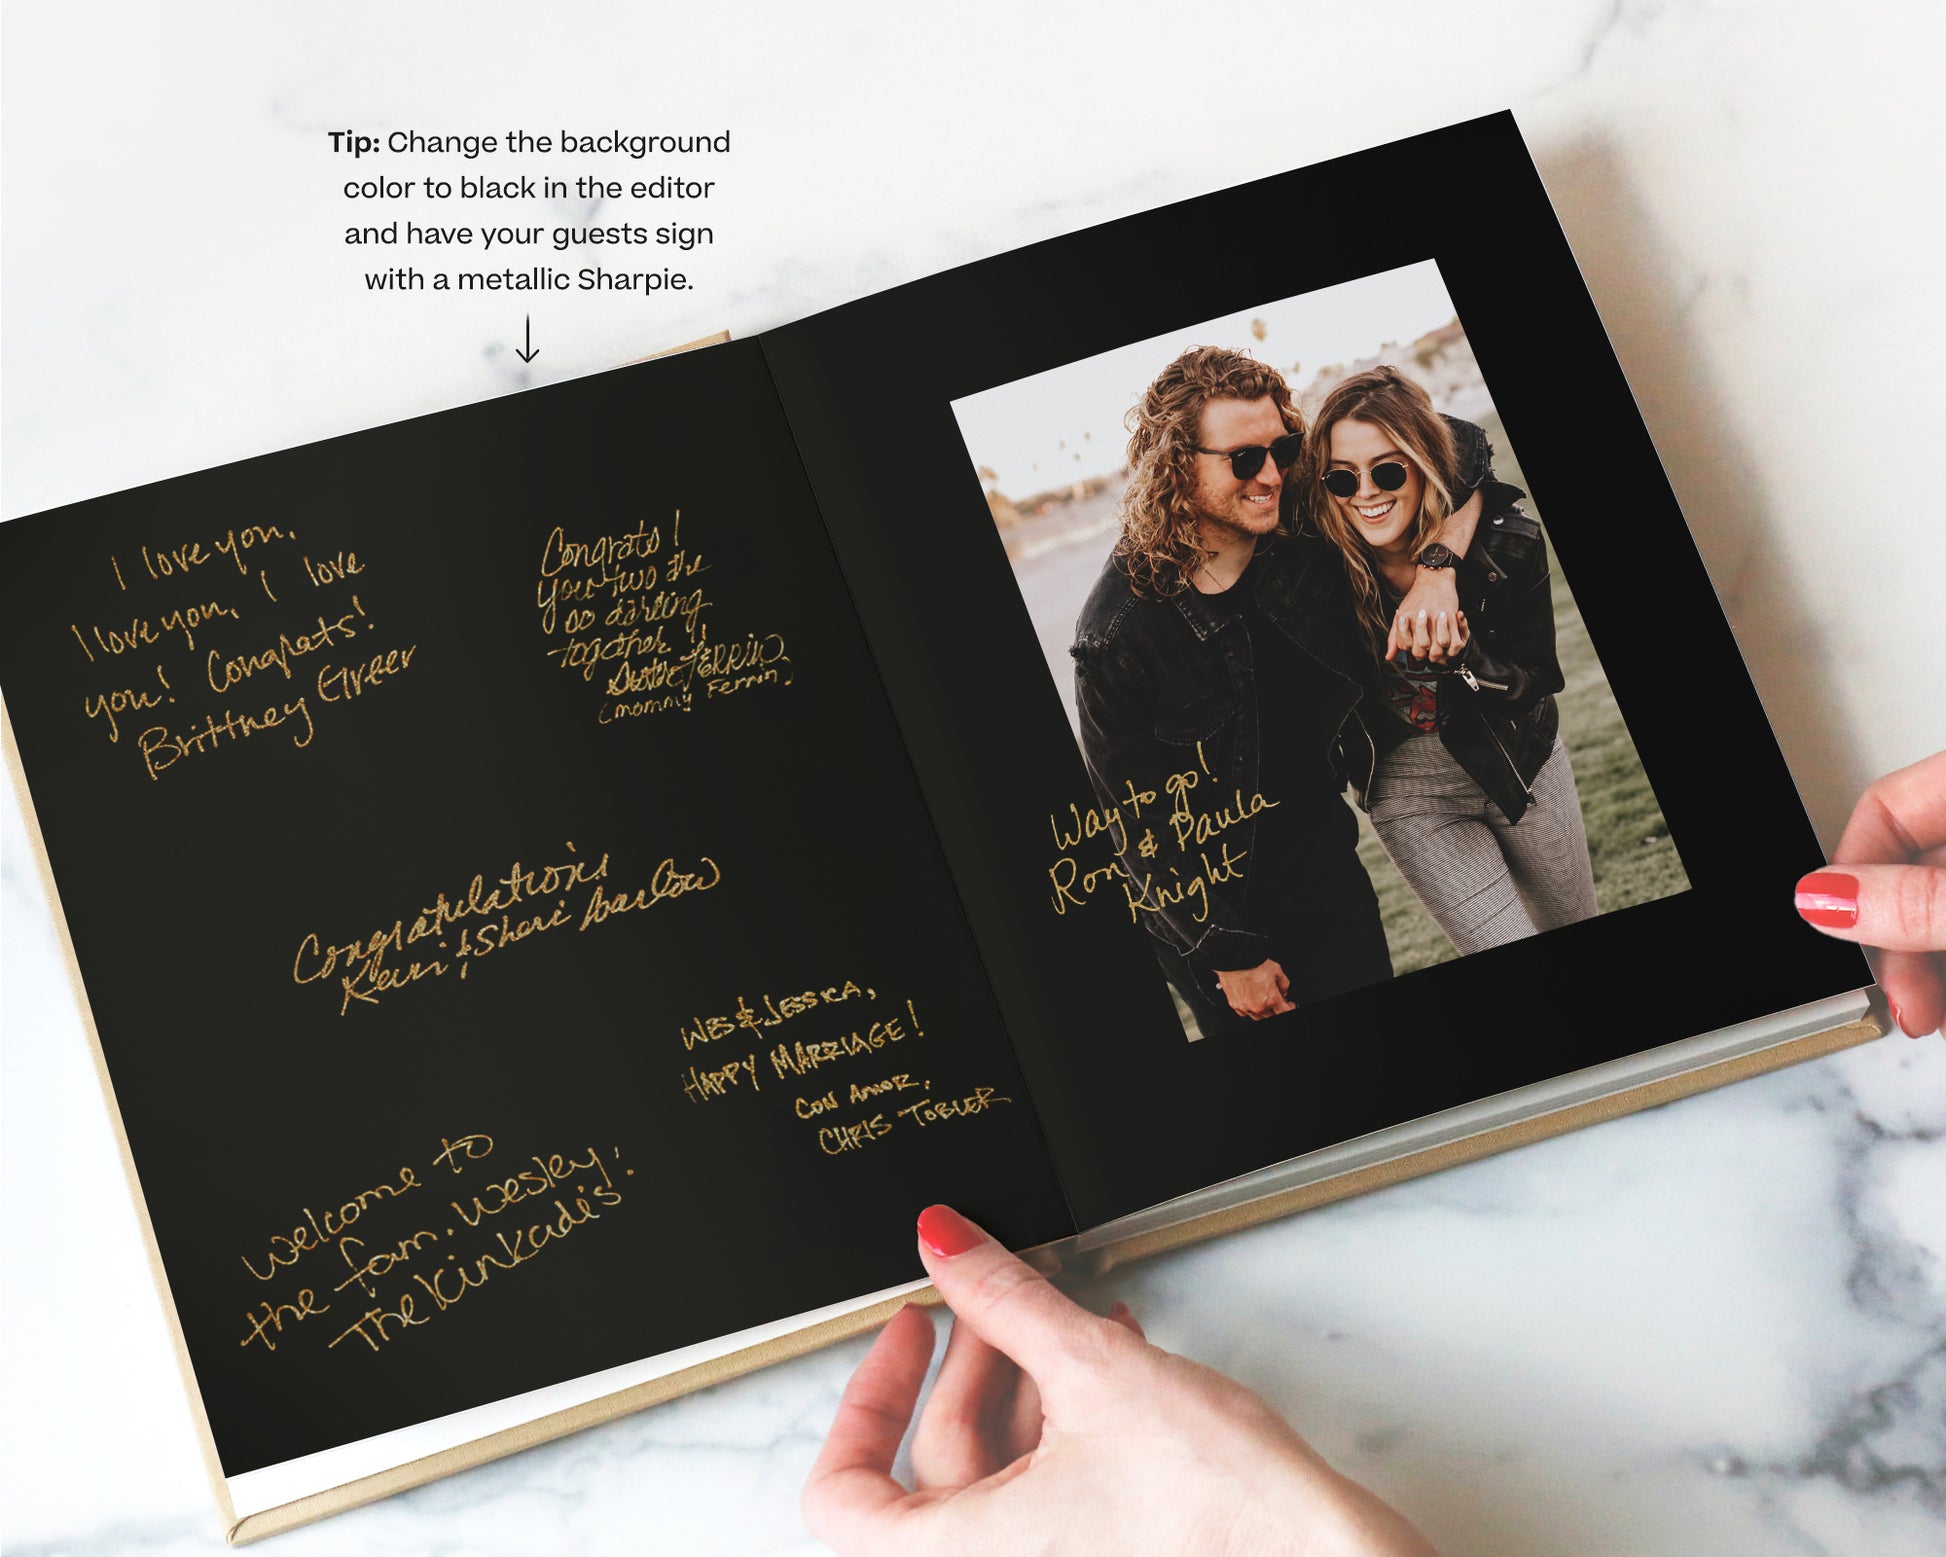 Tip: Change the background
color to black in the editor
and have your guests sign
with a metallic Sharpie.
I love you,
I love you, I love
you! Congrats!
Brittney Greer
Congrats!
You two the
so darling
together!
Ferrin
(mommy Ferrin)
Congratulations
Kevin & Sheri Barlow
Wes & Jessica,
Happy Marriage!
Con Amor,
Chris Tobler
Welcome to
the fam, Wesley!
The Kinkade's
Way to go!
Ron & Paula
Knight